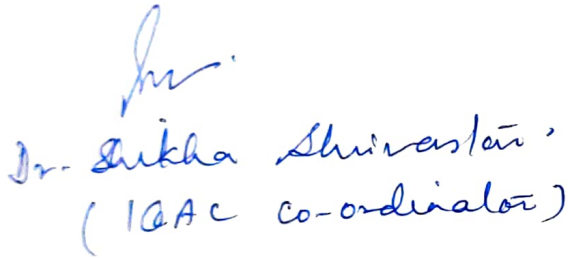 Dr. Shikha Shrivastav.
(IQAC Co-ordinator)